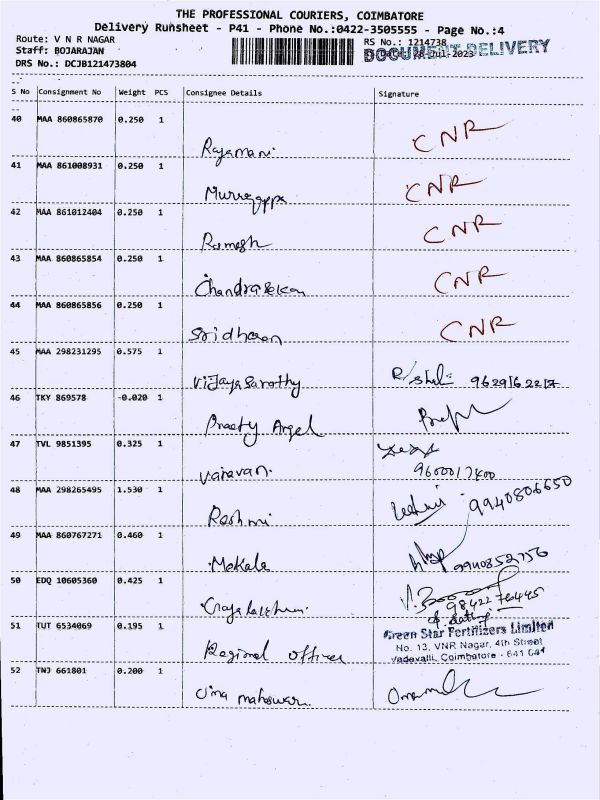 THE PROFESSIONAL COURIERS, COIMBATORE
Delivery Runsheet - P41 - Phone No.:0422-3505555 - Page No.:4
Route: V N R NAGAR
RS No.: 1214738
DOCUMENT DELIVERY
Staff: BOJARAJAN
28-Jul-2023
DRS No.: DCJB121473804
S No Consignment No Weight PCS Consignee Details Signature
40 MAA 860865870 0.250 1
Rajamani CNR
41 MAA 861008931 0.250 1
Murugappa CNR
42 MAA 861012404 0.250 1
Ramesh CNR
43 MAA 860865854 0.250 1
Chandrasekan CNR
44 MAA 860865856 0.250 1
Sridharan CNR
45 MAA 298231295 0.575 1
Vijaya Sarathy
46 TKY 869578 -0.020 1
Angel
47 TVL 9851395 0.325 1
Vairavan 9600017400
48 MAA 298265495 1.530 1
Reshmi 9940806650
49 MAA 860767271 0.460 1
Mekala 9940852756
50 EDQ 10605360 0.425 1
51 TUT 6534069 0.195 1
Green Star Fertilizers Limited
No. 13, VNR Nagar, 4th Street
Vadavalli, Coimbatore - 641 041
Regional officer
52 TNJ 661801 0.200 1
Uma maheswari